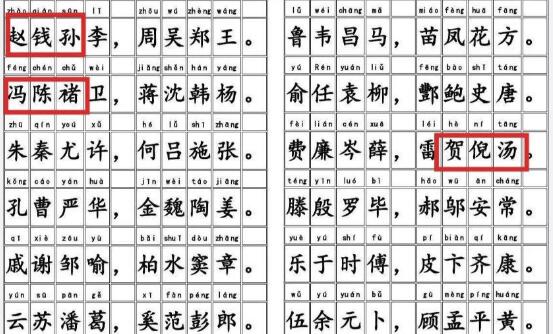 zhào qián sūn lǐ zhōu wú zhèng wáng
赵钱孙李，周吴郑王。
féng chén chǔ wèi jiǎng shěn hán yáng
冯陈褚卫，蒋沈韩杨。
zhū qín yóu xǔ hé lǚ shī zhāng
朱秦尤许，何吕施张。
kǒng cáo yán huà jīn wèi táo jiāng
孔曹严华，金魏陶姜。
qī xiè zōu yù bǎi shuǐ dòu zhāng
戚谢邹喻，柏水窦章。
yún sū pān gě xī fàn péng láng
云苏潘葛，奚范彭郎。
lǔ wéi chāng mǎ miáo fèng huā fāng
鲁韦昌马，苗凤花方。
yú Rén yuán liǔ fēng bào shǐ táng
俞任袁柳，酆鲍史唐。
fèi lián cén xuē léi hè ní tāng
费廉岑薛，雷贺倪汤。
téng yīn luó bì hǎo wū ān cháng
滕殷罗毕，郝邬安常。
yuè yú shí fù pí biàn qí kāng
乐于时傅，皮卞齐康。
wǔ yú yuán bǔ gù mèng píng huáng
伍余元卜，顾孟平黄。